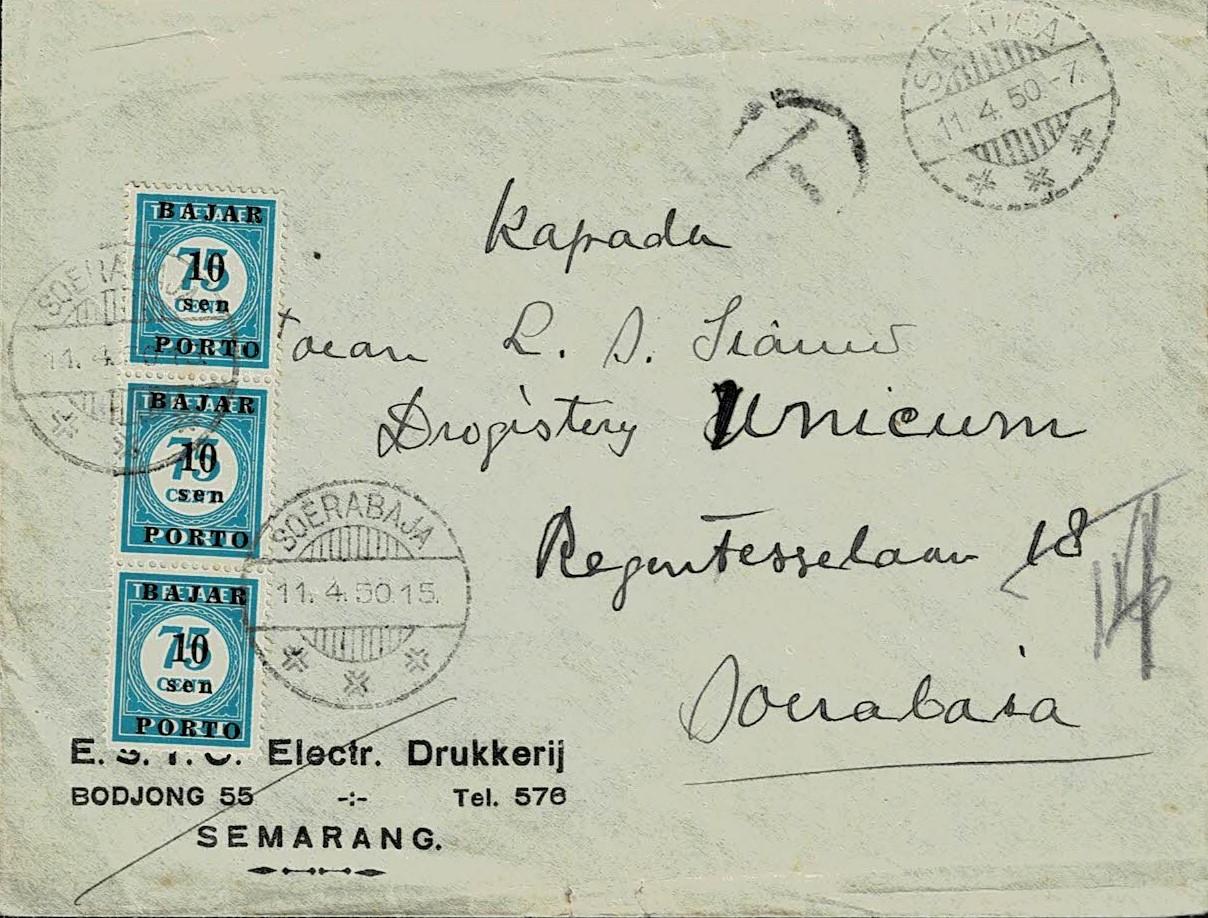 SALATIGA
11. 4. 50 -7.
T
BAJAR
10
sen
PORTO
BAJAR
10
sen
PORTO
BAJAR
10
sen
PORTO
75
CENT
75
CENT
75
CENT
SOERABAJA
11. 4.
SOERABAJA
11. 4. 50 15.
Kapada
Toean L. S.
Drogistery Unicum
Regentesselaan 18
Soerabaia
Electr. Drukkerij
BODJONG 55 -:- Tel. 576
SEMARANG.